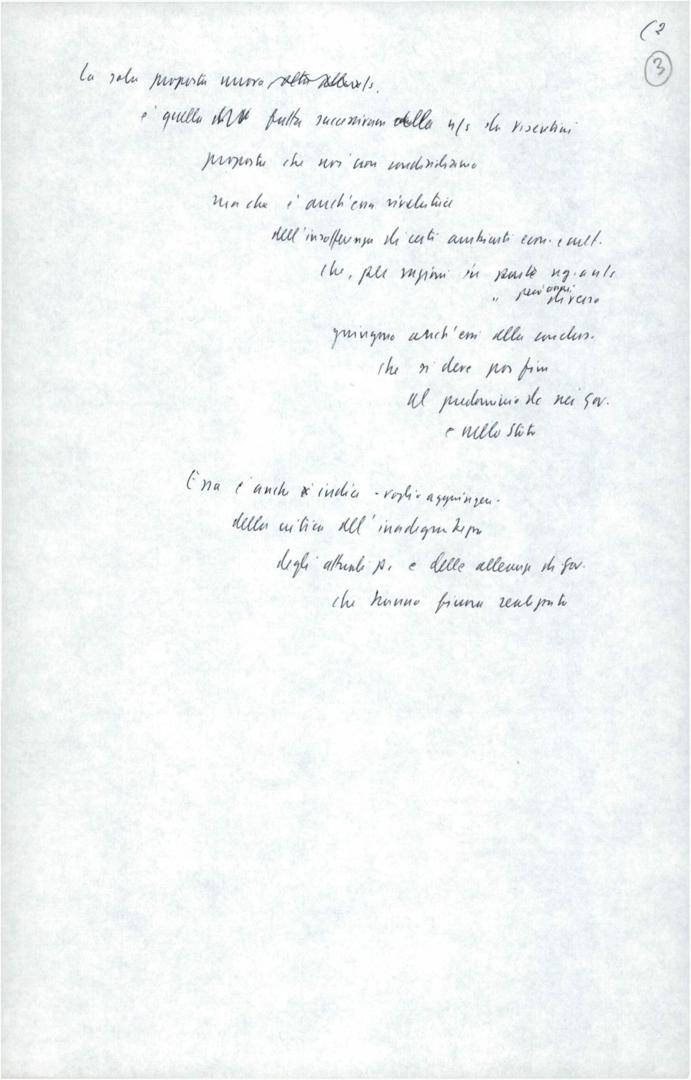 (2
3
La sola proposta nuova
è quella fatta successivam. alla n/s da Visentini
proposta che noi non condividiamo
ma che è anch'essa rivelatrice
dell'insofferenza di certi ambienti econ. e cult.
che, per ragioni in parte
" " diverse
giungono anch'essi alla conclus.
che si deve por fine
al predominio dc nei gov.
e nello Stato
Essa è anche indice - voglio aggiungere -
della critica all'inadeguatezza
degli attuali p. e delle alleanze di gov.
che hanno finora